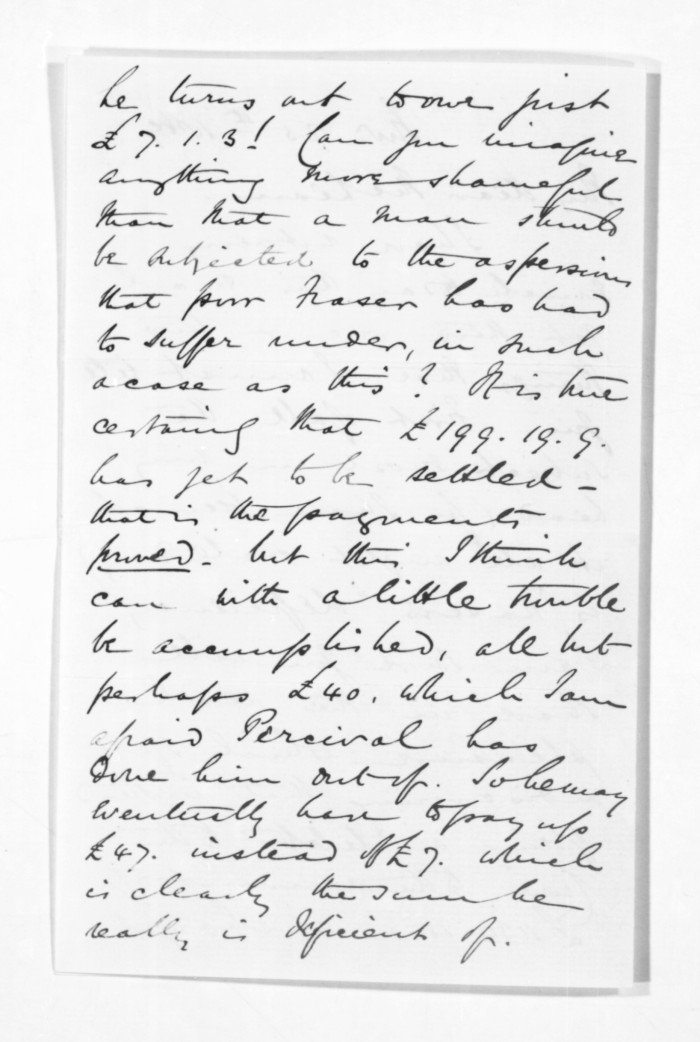 he turns out to owe just
£7. 1. 3! Can you imagine
anything more shameful
than that a man should
be subjected to the aspersions
that poor Fraser has had
to suffer under, in such
a case as this? It is true
certainly that £199. 19. 9.
has yet to be settled -
that is the payments
proved - but this I think
can with a little trouble
be accomplished, all but
perhaps £40. which I am
afraid Percival has
done him out of. So he may
eventually have to pay up
£47. instead of £7. which
is clearly the sum he
really is deficient of.